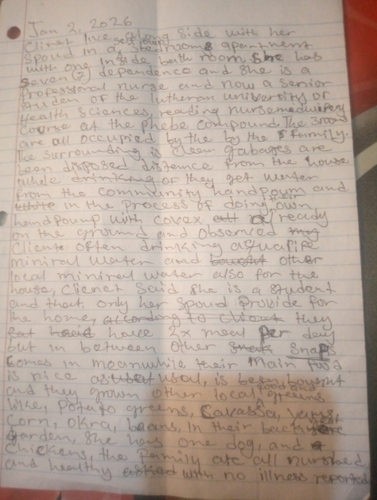 Jan 2, 2026
Client live along side with her
Spoud in a 3bedrooms apartment
with one inside bath room, She has
Seven (7) dependence and she is a
Professional nurse and now a senior
Studen of the lutheran university of
Health Sciences, reading nurse
Course at the Phebe compound. The 3rooms
are all occupied by the by the family.
The surrounding is gabages are
been disposed distance from the house
while or they get water
from the community handpump and
in the process of doing own
handpump with already
on the ground and observed
Client often drinking aqualife
miniral water and other
local miniral water also for the
house, Client Said she is a student
and that only her spoud Provide for
the home, they
have 2x meal Per day
but in between other Snaps
Comes in meanwhile their main food
is rice as usal, is been
and they grown other local greens
like, Potato greens, Cavassa,
Corn, Okra, beans, In their back
garden, She has one dog, and
Chickens, the family are all nurshed
and healthy with no illness reported